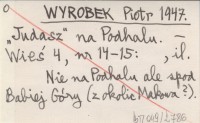 0
WYROBEK Piotr 1947.
"Judasz" na Podhalu. —
Wieś 4, nr 14-15: , il.
Nie na Podhalu ale spod
Babiej Góry (z okolic Makowa?).